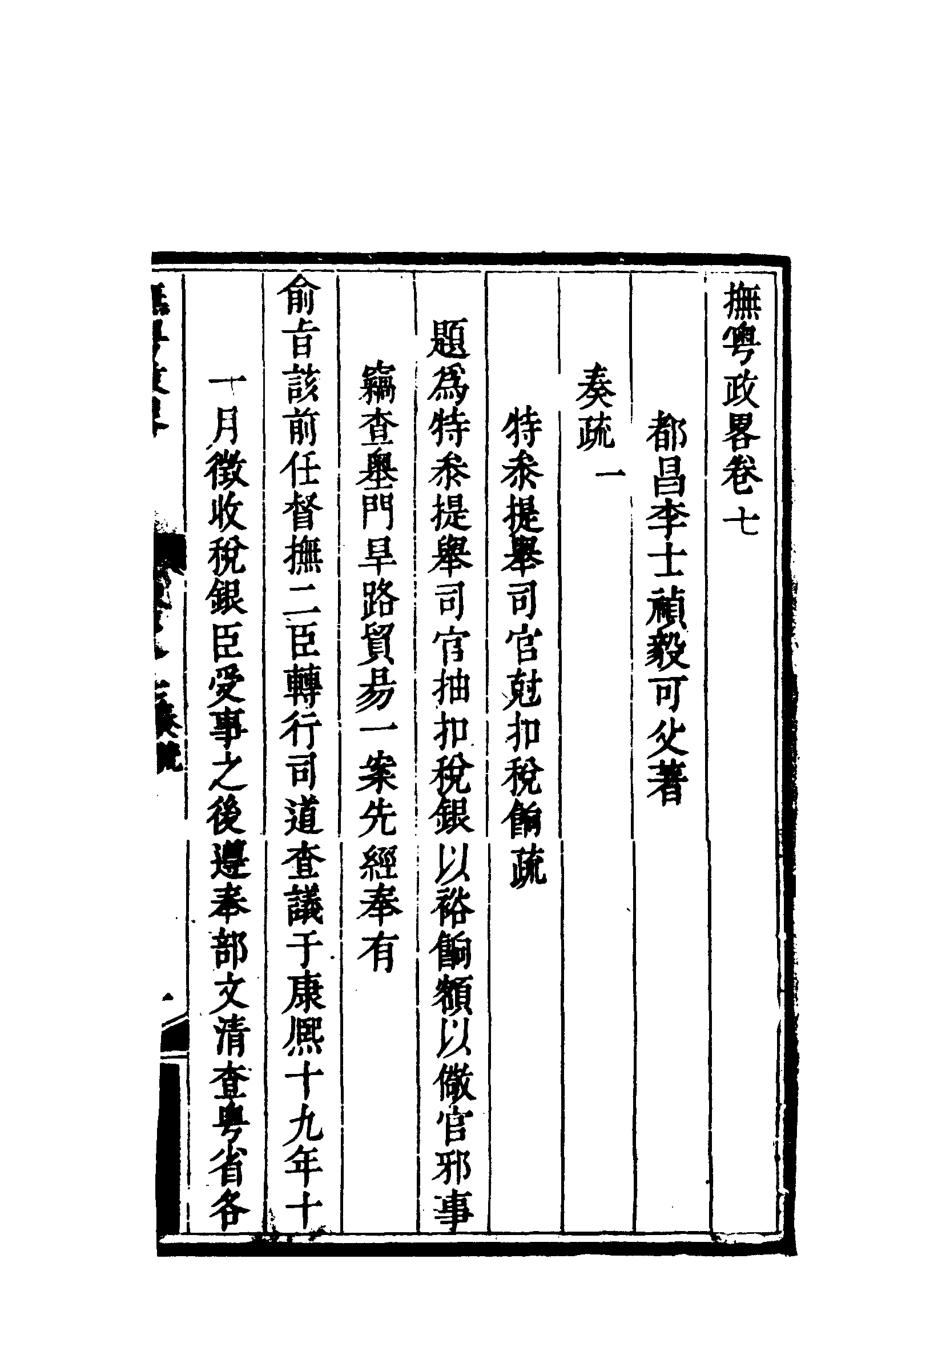 撫粵政畧卷七
都昌李士禎毅可父著
奏疏一
特叅提舉司官尅扣稅餉疏
題為特叅提舉司官抽扣稅銀以裕餉額以儆官邪事
竊查㠗門旱路貿易一案先經奉有
俞旨該前任督撫二臣轉行司道查議于康熈十九年十
一月徵收稅銀臣受事之後遵奉部文清查粵省各